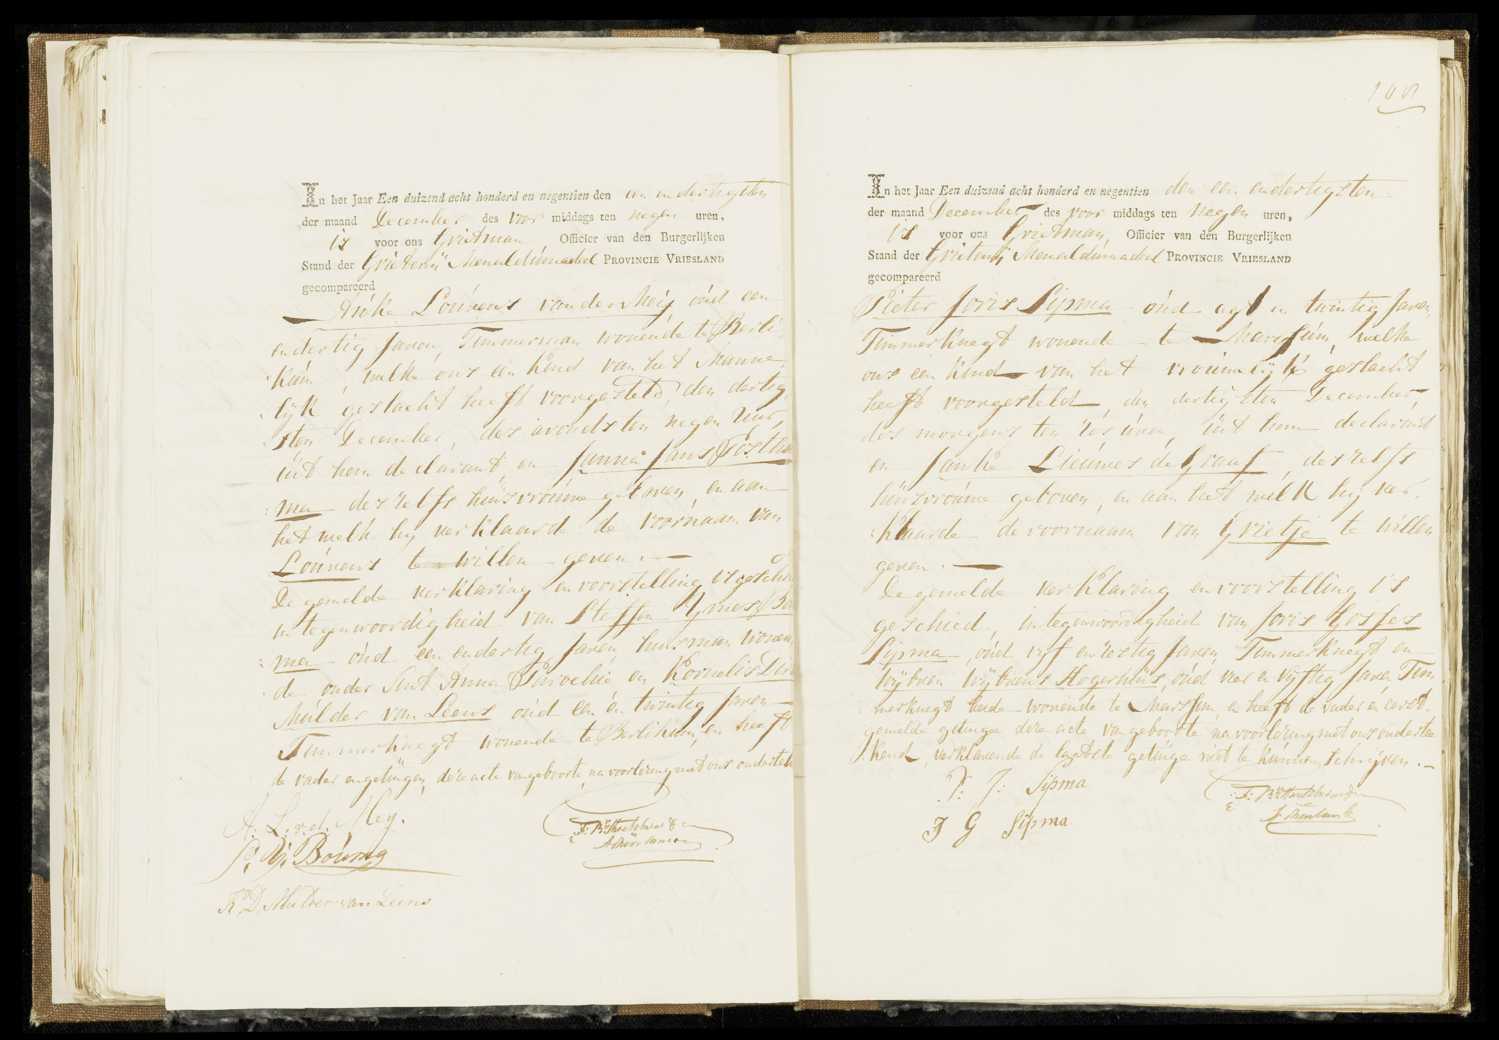 In het Jaar Een duizend acht honderd en negentien den een en dertigsten
der maand December des voor middags ten negen uren,
is voor ons Grietman Officier van den Burgerlijken
Stand der Grietenij Menaldumadeel PROVINCIE VRIESLAND
gecompareerd
Louwens van der Meij oud een
en dertig Jaren, Timmerman wonende te Berli
kum, welke ons een kind van het Manne
lijk geslacht heeft voorgesteld, den dertig
sten December, des avonds ten negen uur,
uit hem declarant, en Janna Jans Postu
ma deszelfs huisvrouwe geboren, en aan
het welk hij verklaarde de voornaam van
Louwens te willen geven.
De gemelde verklaring en voorstelling is geschied
in tegenwoordigheid van Steffen
ma oud een en dertig Jaren huisman wonen
de onder Sint Anna Parochie en Kornelis Dirks
Mulder van Leens oud een en twintig Jaren
Timmerknegt wonende te Berlikum, en heeft
de vader en getuigen, deze acte van geboorte, na voorlezing met ons ondertek
A. L. v. d. Meij.
Bouma
K. D. Mulder van Leens
198
In het Jaar Een duizend acht honderd en negentien den een en dertigsten
der maand December des voor middags ten negen uren,
is voor ons Grietman Officier van den Burgerlijken
Stand der Grietenij Menaldumadeel PROVINCIE VRIESLAND
gecompareerd
Pieter Joris Sipma oud agt en twintig Jaren,
Timmerknegt wonende te Marssum, welke
ons een kind van het vrouwelijk geslacht
heeft voorgesteld, den dertigsten December
des morgens ten zes uren, uit hem declarant
en Jantke Lieuwes de Graaf, deszelfs
huisvrouwe geboren, en aan het welk hij ver
klaarde de voornaam van Grietje te willen
geven.
De gemelde verklaring en voorstelling is
geschied, in tegenwoordigheid van Joris Gosses
Sipma, oud vijf en zestig Jaren, Timmerknegt en
Wijbren Wijbrens Hogerhuis, oud vier en vijftig Jaren Tim
merknegt beide wonende te Marssum, en heeft de vader en eerst
gemelde getuige deze acte van geboorte na voorlezing met ons onderte
kend, verklarende de laatste getuige niet te kunnen schrijven.
P: J: Sipma
J G Sipma